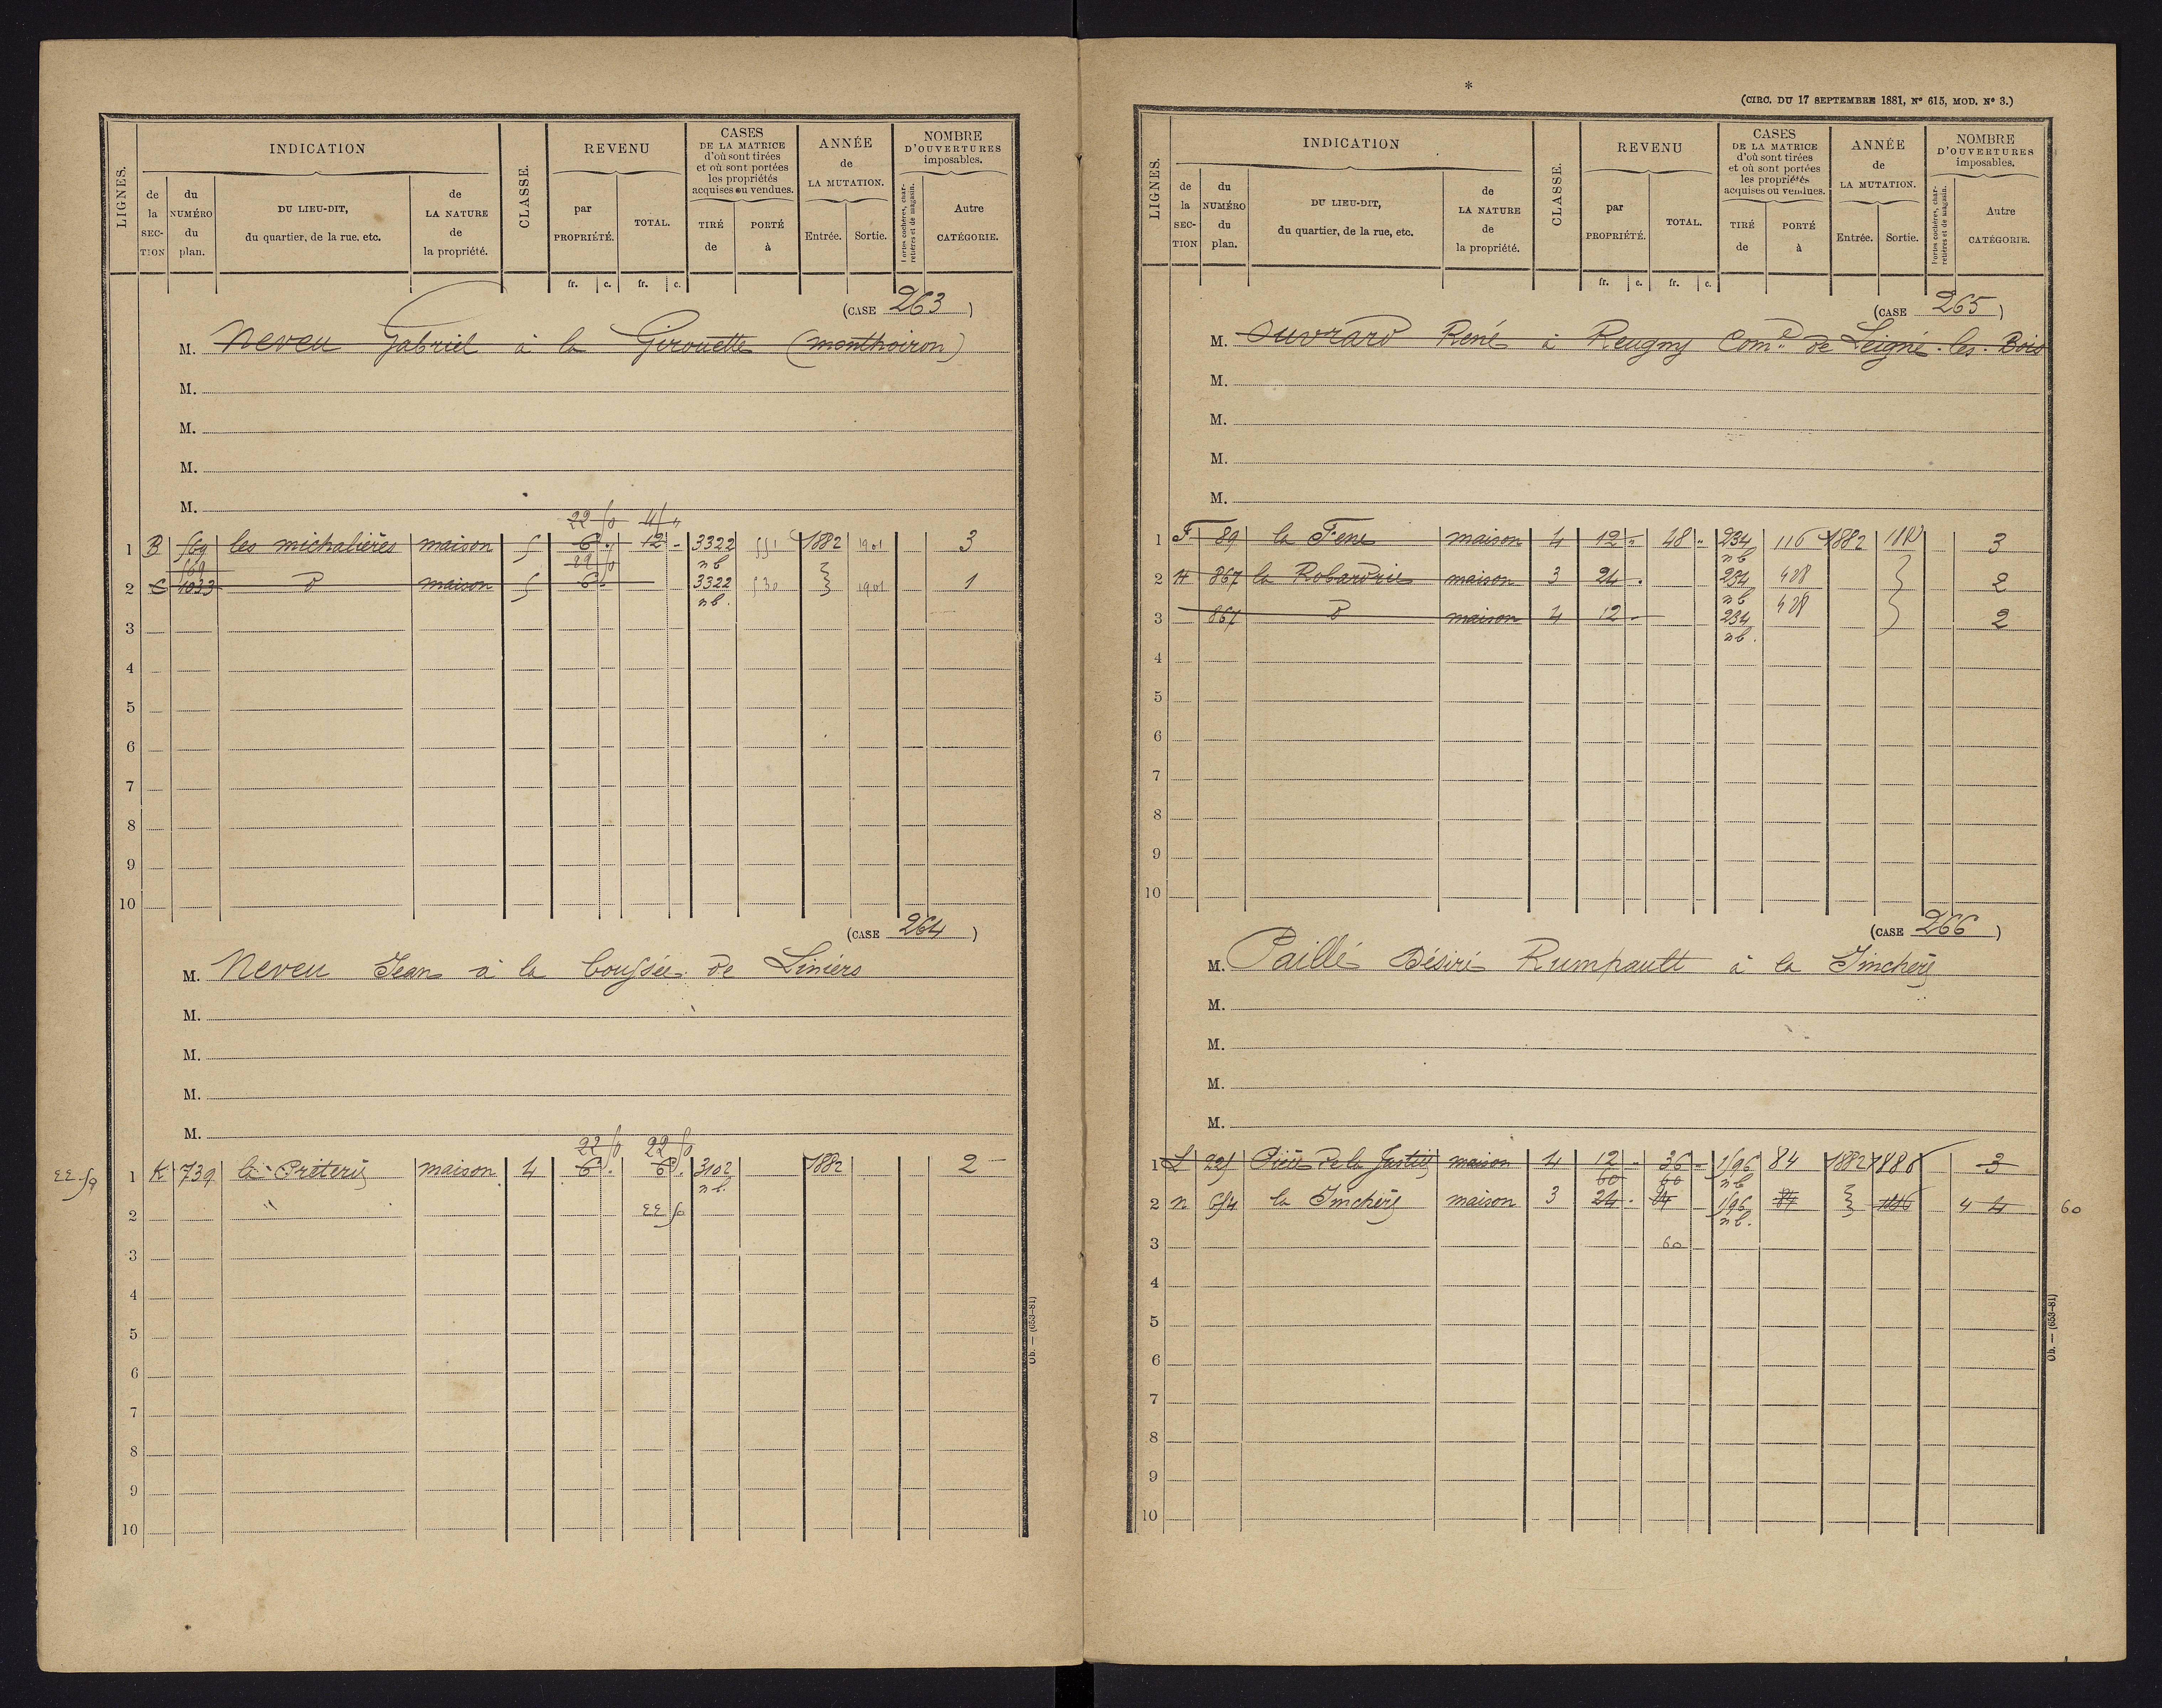 LIGNES.
INDICATION
de la SECTION
du NUMÉRO du plan.
DU LIEU-DIT, du quartier, de la rue, etc.
de LA NATURE de la propriété.
CLASSE.
REVENU
par PROPRIÉTÉ.
TOTAL.
fr. c. fr. c.
CASES DE LA MATRICE d'où sont tirées et où sont portées les propriétés acquises ou vendues.
TIRÉ de
PORTÉ à
ANNÉE de LA MUTATION.
Entrée. Sortie.
NOMBRE D'OUVERTURES imposables.
Portes cochères, charretières et de magasin.
Autre CATÉGORIE.
(CASE 263)
M. Neveu Gabriel à la Girouette (monthoiron)
M.
M.
M.
M.
22 50 45 "
1 B 569 les michalières maison 5 6 . 12 - 3322 nb 551 1882 1901 3
569 22 50
2 C 1033 d maison 5 6 - 3322 nb. 530 1901 1
3
4
5
6
7
8
9
10
(CASE 264)
M. Neveu Jean à la boussée de Liniers
M.
M.
M.
M.
22 50 22 50
22 50 1 K 739 la Préterie maison 4 6 . 6 . 3102 nb. 1882 2
2 22 50
3
4
5
6
7
8
9
10
Ob. — (653-81)
*
(CIRC. DU 17 SEPTEMBRE 1881, N° 615, MOD. N° 3.)
LIGNES.
INDICATION
de la SECTION
du NUMÉRO du plan.
DU LIEU-DIT, du quartier, de la rue, etc.
de LA NATURE de la propriété.
CLASSE.
REVENU
par PROPRIÉTÉ.
TOTAL.
fr. c. fr. c.
CASES DE LA MATRICE d'où sont tirées et où sont portées les propriétés acquises ou vendues.
TIRÉ de
PORTÉ à
ANNÉE de LA MUTATION.
Entrée. Sortie.
NOMBRE D'OUVERTURES imposables.
Portes cochères, charretières et de magasin.
Autre CATÉGORIE.
(CASE 265)
M. Ouvrard René à Reugny Com.e de Leigné-les-Bois
M.
M.
M.
M.
1 F 89 la Fene maison 4 12 - 48 " 234 nb 116 1882 3
2 H 867 la Robardrie maison 3 24 . 234 nb 428 2
3 867 d maison 4 12 - 234 nb. 428 2
4
5
6
7
8
9
10
(CASE 266)
M. Paillé Désiré Rumpault à la Imchère
M.
M.
M.
M.
1 L 225 Pièce de la Justice maison 4 12 - 36 - 1596 nb 84 1882 1886 3
60 60
2 n 654 la Imchère maison 3 24 . 24 - 1596 nb. 84 1886 4 4 60
3 60
4
5
6
7
8
9
10
Ob. — (653-81)